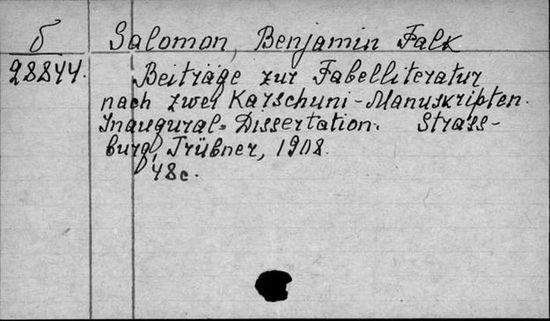 б Salomon, Benjamin Falk
28844. Beiträge zur Fabelliteratur
nach zwei Karschuni-Manuskripten.
Inaugural-Dissertation. Strass-
burg, Trübner, 1908.
48c.